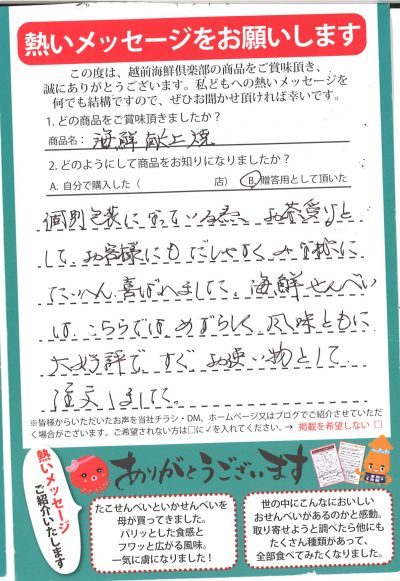 熱いメッセージをお願いします
この度は、越前海鮮倶楽部の商品をご賞味頂き、
誠にありがとうございます。私どもへの熱いメッセージを
何でも結構ですので、ぜひお聞かせ頂ければ幸いです。
1. どの商品をご賞味頂きましたか?
商品名： 海鮮献上焼
2. どのようにして商品をお知りになりましたか?
A. 自分で購入した（　　　　　店） B. 贈答用として頂いた
個別包装になっている為 お茶受けと
して、お客様にもだしやすく、皆様に
たいへん喜ばれました。海鮮せんべい
は、こちらではめずらしく、風味ともに
大好評で、すぐお使い物として
注文しました。
※皆様からいただいたお声を当社チラシ・DM、ホームページ又はブログでご紹介させていただ
く場合がございます。ご希望されない方は□に✓を入れてください。→ 掲載を希望しない □
熱いメッセージ
ご紹介いたします
ありがとうございます
たこせんべいといかせんべいを
母が買ってきました。
パリッとした食感と
フワッと広がる風味。
一気に虜になりました！
世の中にこんなにおいしい
おせんべいがあるのかと感動。
取り寄せようと調べたら他にも
たくさん種類があって、
全部食べてみたくなりました。